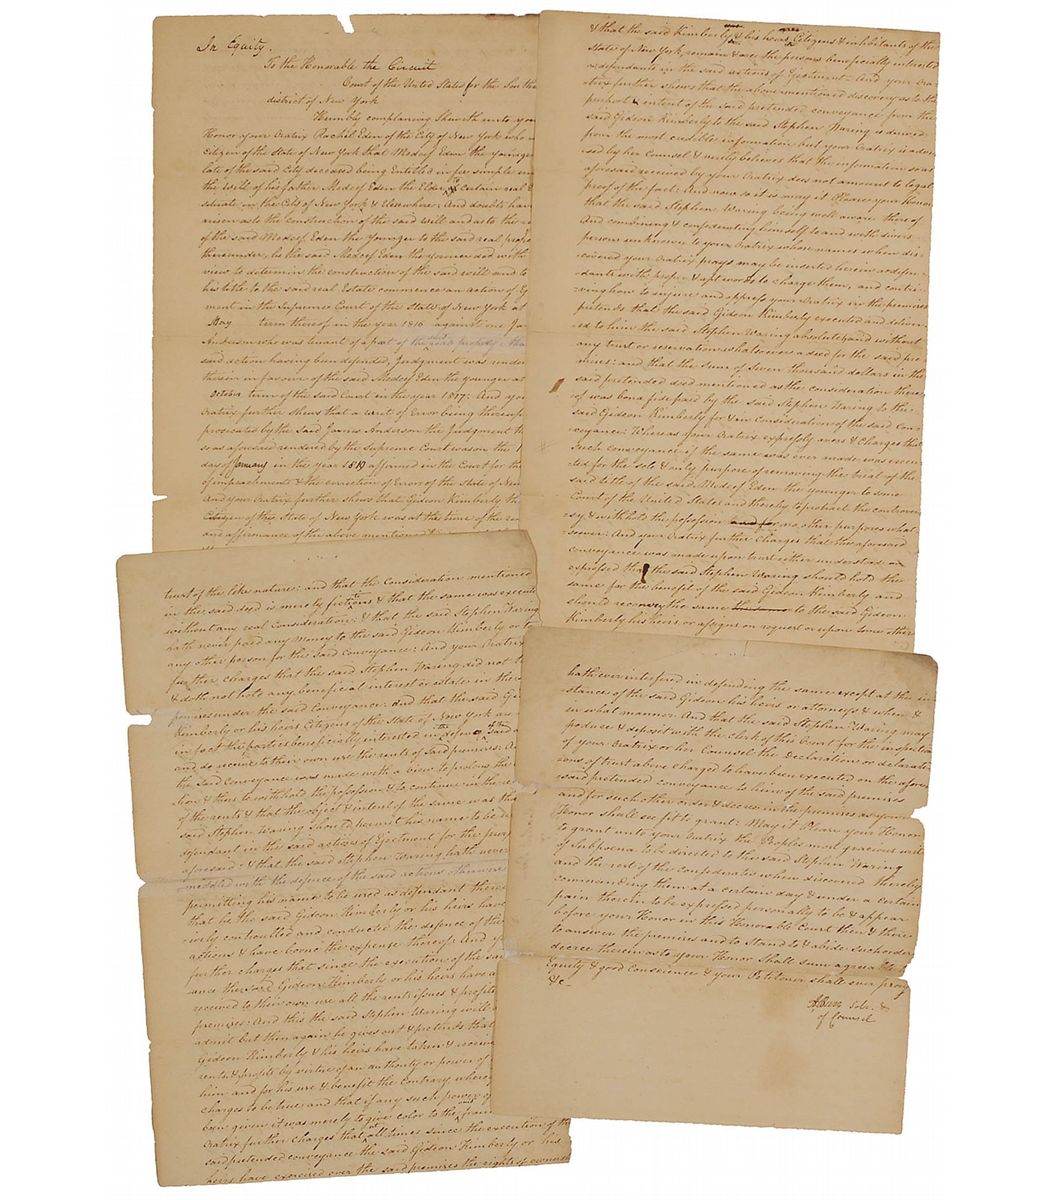 In Equity.
To the Honorable the Circuit
Court of the United States for the Southe
district of New York
Humbly complaining Sheweth unto you
Honor your Oratrix Rachel Eden of the City of New York who
citizen of the State of New York that Medcef Eden the younger
late of the said City deceased being Entitled in fee simple un
the will of his father Medcef Eden the Elder to certain real E
situate in the City of New York & Elsewhere: And doubts havi
arisen as to the construction of the said will and as to the
of the said Medcef Eden the Younger to the said real prope
thereunder, he the said Medcef Eden the younger did with
view to determin the construction of the said will and to
his title to the said real Estate commence an action of Ej
ment in the Supreme Court of the State of New York at
May term thereof in the year 1816 against one Ja
Anderson who was tenant of a part of the said property: tha
said action having been defended, Judgment was render
therein in favour of the said Medcef Eden the younger at
October term of the said Court in the year 1817: And you
Oratrix further shows that a writ of Error being thereup
prosecuted by the Said James Anderson the Judgment th
so as aforesaid rendered by the Supreme Court was on the 1
day of January in the year 1819 affirmed in the Court for the
of impeachments & the correction of Errors of the State of New
And your Oratrix further shows that Gideon Kimberly th
Citizen of this State of New York was at the time of the ren
and affirmance of the above mention
& that the said Kimberly & his heirs, Citizens & inhabitants of the
State of New York, remain & are the persons beneficially interested
as defendants in the said actions of Ejectment – And your Ora
trix further shows that the above mentioned discovery as to the
purport & intent of the said pretended conveyance from the
said Gideon Kimberly to the said Stephen Waring is derived
from the most credible information but your Oratrix is advi
sed by her Counsel & verily believes that the information so as
aforesaid received by your Oratrix does not amount to legal
proof of the fact: And now so it is may it Please your Honor
that the said Stephen Waring being well aware thereof
And combining & confederating himself to and with divers
persons unknown to your Oratrix whose names when dis-
covered your Oratrix prays may be inserted herein as defen-
dants with proper & apt words to charge them, and contri-
ving how to injure and oppress your Oratrix in the premises
pretends that the said Gideon Kimberly executed and deliver-
ed to him the said Stephen Waring absolutely and without
any trust or reservation whatsoever a deed for the said pre
mises: and that the sum of Seven thousand dollars in the
said pretended deed mentioned as the consideration there
of was bona fide paid by the said Stephen Waring to the
said Gideon Kimberly for & in Consideration of the said Con-
veyance: Whereas your Oratrix expressly avers & Charges that
such conveyance if the same was ever made was execu
ted for the sole & only purpose of removing the trial of the
said title of the said Medcef Eden the younger to some
Court of the United States and thereby to protract the controver
sy & withhold the possession and for no other purposes what
soever: And your Oratrix further Charges that the aforesaid
conveyance was made upon trust either understood or
expressed that the said Stephen Waring should hold the
same for the benefit of the said Gideon Kimberly and
should reconvey the same to the said Gideon
Kimberly his heirs or assigns on request or upon some other
trust of the like nature: and that the Consideration mentioned
in the said deed is merely fictitious & that the same was execute
without any real Consideration: & that the said Stephen Waring
hath never paid any money to the said Gideon Kimberly or to
any other person for the said Conveyance: And your Oratrix
further charges that the said Stephen Waring did not t
& doth not hold any beneficial interest or estate in the
premises under the said Conveyance: and that the said Gi
Kimberly or his heirs Citizens of the State of New York are
in fact the parties beneficially interested in defending said
and do receive to their own use the rents of Said premises: An
the said Conveyance was made with a View to prolong the
tion & thus to withhold the possession & to continue in the re
of the rents & that the object & intent of the same was tha
said Stephen Waring should permit his name to be
defendant in the said actions of Ejectment for the purp
aforesaid: & that the said Stephen Waring hath never
meddled with the defence of the said actions otherwise
permitting his name to be used as defendant therei
that he the said Gideon Kimberly or his heirs have
rely controulled and conducted the defence of the
actions & have borne the expense thereof: And y
further charges that since the execution of the sai
ance the said Gideon Kimberly or his heirs have a
received to their own use all the rents issues & profits
premises: And this the said Stephen Waring will a
admit but then again he gives out & pretends that
Gideon Kimberly & his heirs have taken & receive
rents & profits by virtue of an authority or power of
him and for his use & benefit the Contrary whereof
charges to be true, and that if any such power
been given it was merely to give color to the fraud
Oratrix further charges that at all times since the execution of the
said pretended conveyance the said Gideon Kimberly or his
heirs have exercised over the said premises the rights of owners
hath ever interfered in defending the same except at the in
stance of the said Gideon his heirs or attorneys & when &
in what manner. And that the said Stephen Waring may
produce & deposit with the Clerk of this Court for the inspection
of your Oratrix or her Counsel the Declaration or declarati
ons of trust above charged to have been executed on the afore
said pretended conveyance to him of the said premises
and for such other order & decree in the premises as your
Honor shall see fit to grant: May it Please your Honor
to grant unto your Oratrix the Peoples most gracious writ
of Subpoena to be directed to the said Stephen Waring
and the rest of the confederates when discovered thereby
commanding them at a certain day & under a certain
pain therein to be expressed personally to be & appear
before your Honor in this Honorable Court then & there
to answer the premises and to Stand to & abide such order
decree therein as to your Honor Shall seem agreeable to
Equity & good Conscience & your Petitioner shall ever pray
&c–
Solr. &
of Counsel